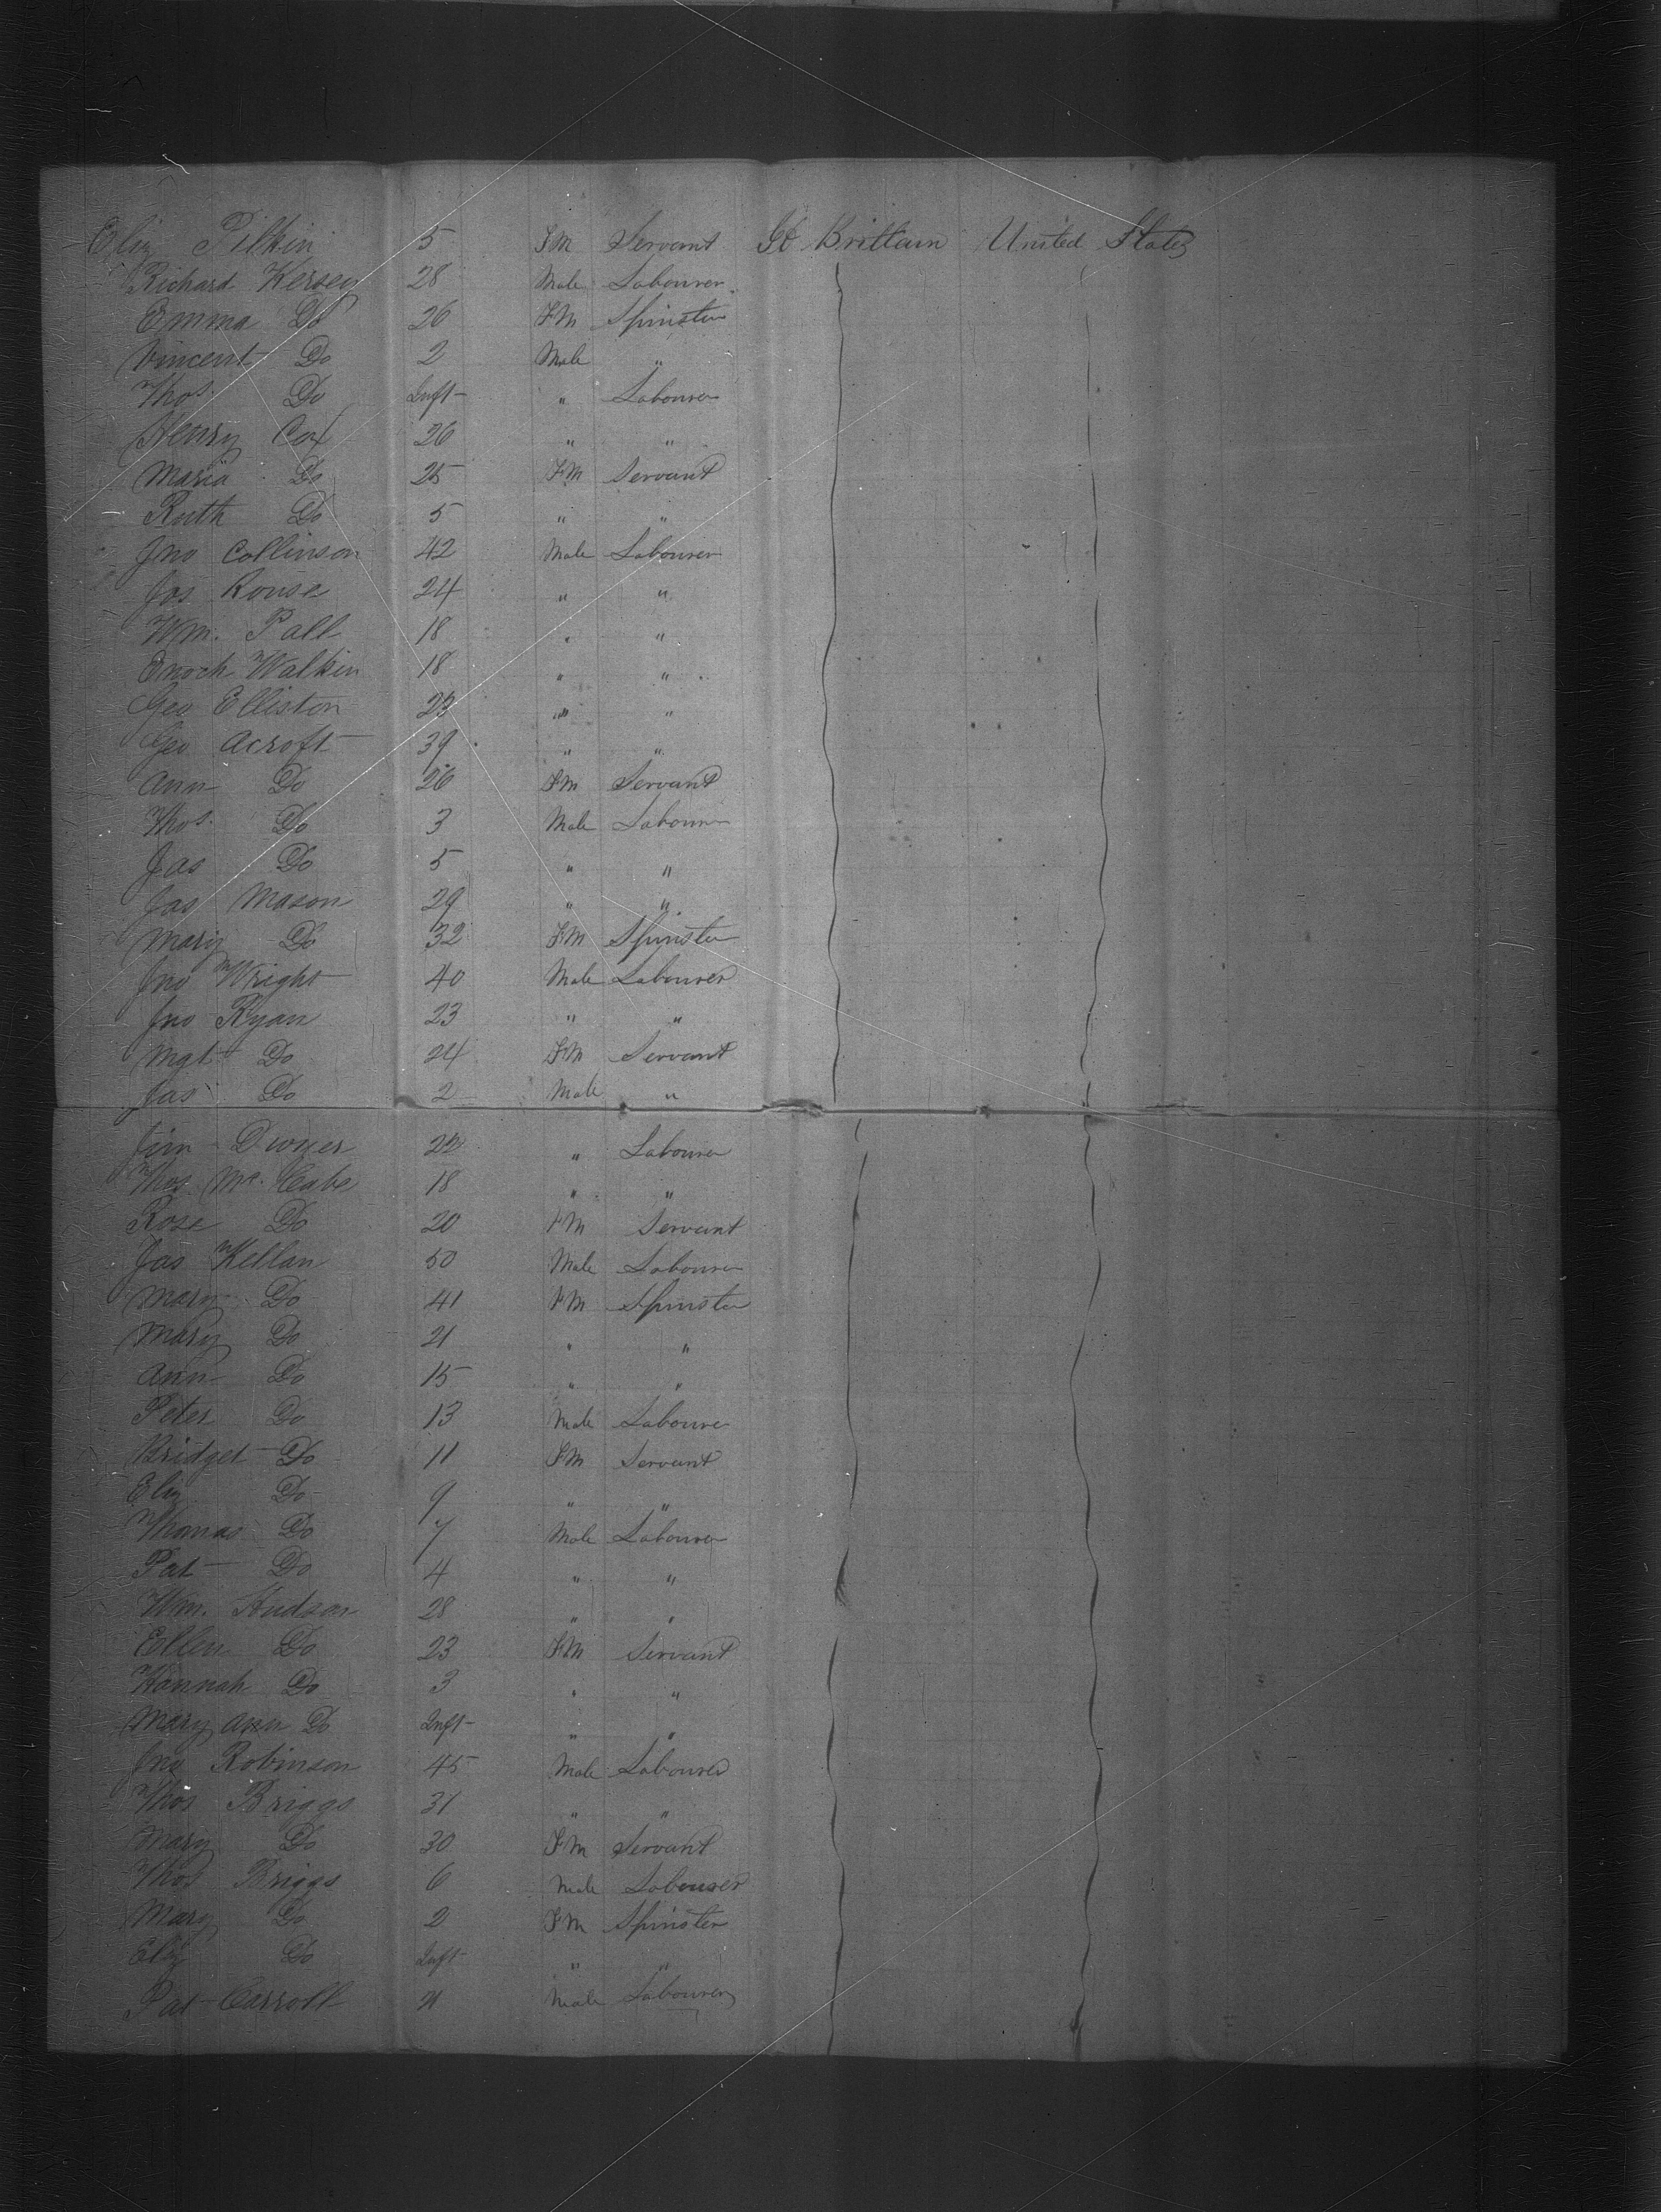 Eliz Pilkin 5 FM Servant Gt Brittain United States
Richard Kersey 28 Male Labourer
Emma Do 26 FM Spinster
Vincent Do 2 Male "
Thos. Do Inft "  Labourer
Henry Cox 26 " "
Maria Do 25 FM Servant
Ruth Do 5 " "
Jno Collinson 42 Male Labourer
Jos Rouse 24 " "
Wm. Pall 18 " "
Enoch Walkin 18 " "
Geo Elliston 23 " "
Geo Acroft 39 " "
Ann Do 26 FM Servant
Thos. Do 3 Male Labourer
Jas Do 5 " "
Jas Mason 29 " "
Mary Do 32 FM Spinster
Jno Wright 40 Male Labourer
Jno Ryan 23 " "
Mgt Do 24 FM Servant
Jas Do 2 Male "
Jim Dwyer 22 " Labourer
Thos McCabe 18 " "
Rose Do 20 FM Servant
Jas Kellan 50 Male Labourer
Mary Do 41 FM Spinster
Mary Do 21 " "
Ann Do 15 " "
Peter Do 13 Male Labourer
Bridget Do 11 FM Servant
Eliz Do 9 " "
Thomas Do 7 Male Labourer
Pat Do 4 " "
Wm. Hudson 28 " "
Ellen Do 23 FM Servant
Hannah Do 3 " "
Mary Ann Do Inft " "
Jno Robinson 45 Male Labourer
Thos Briggs 31 " "
Mary Do 30 FM Servant
Thos Briggs 6 Male Labourer
Mary Do 2 FM Spinster
Eliz Do Inft " "
Pat Carroll 21 Male Labourer